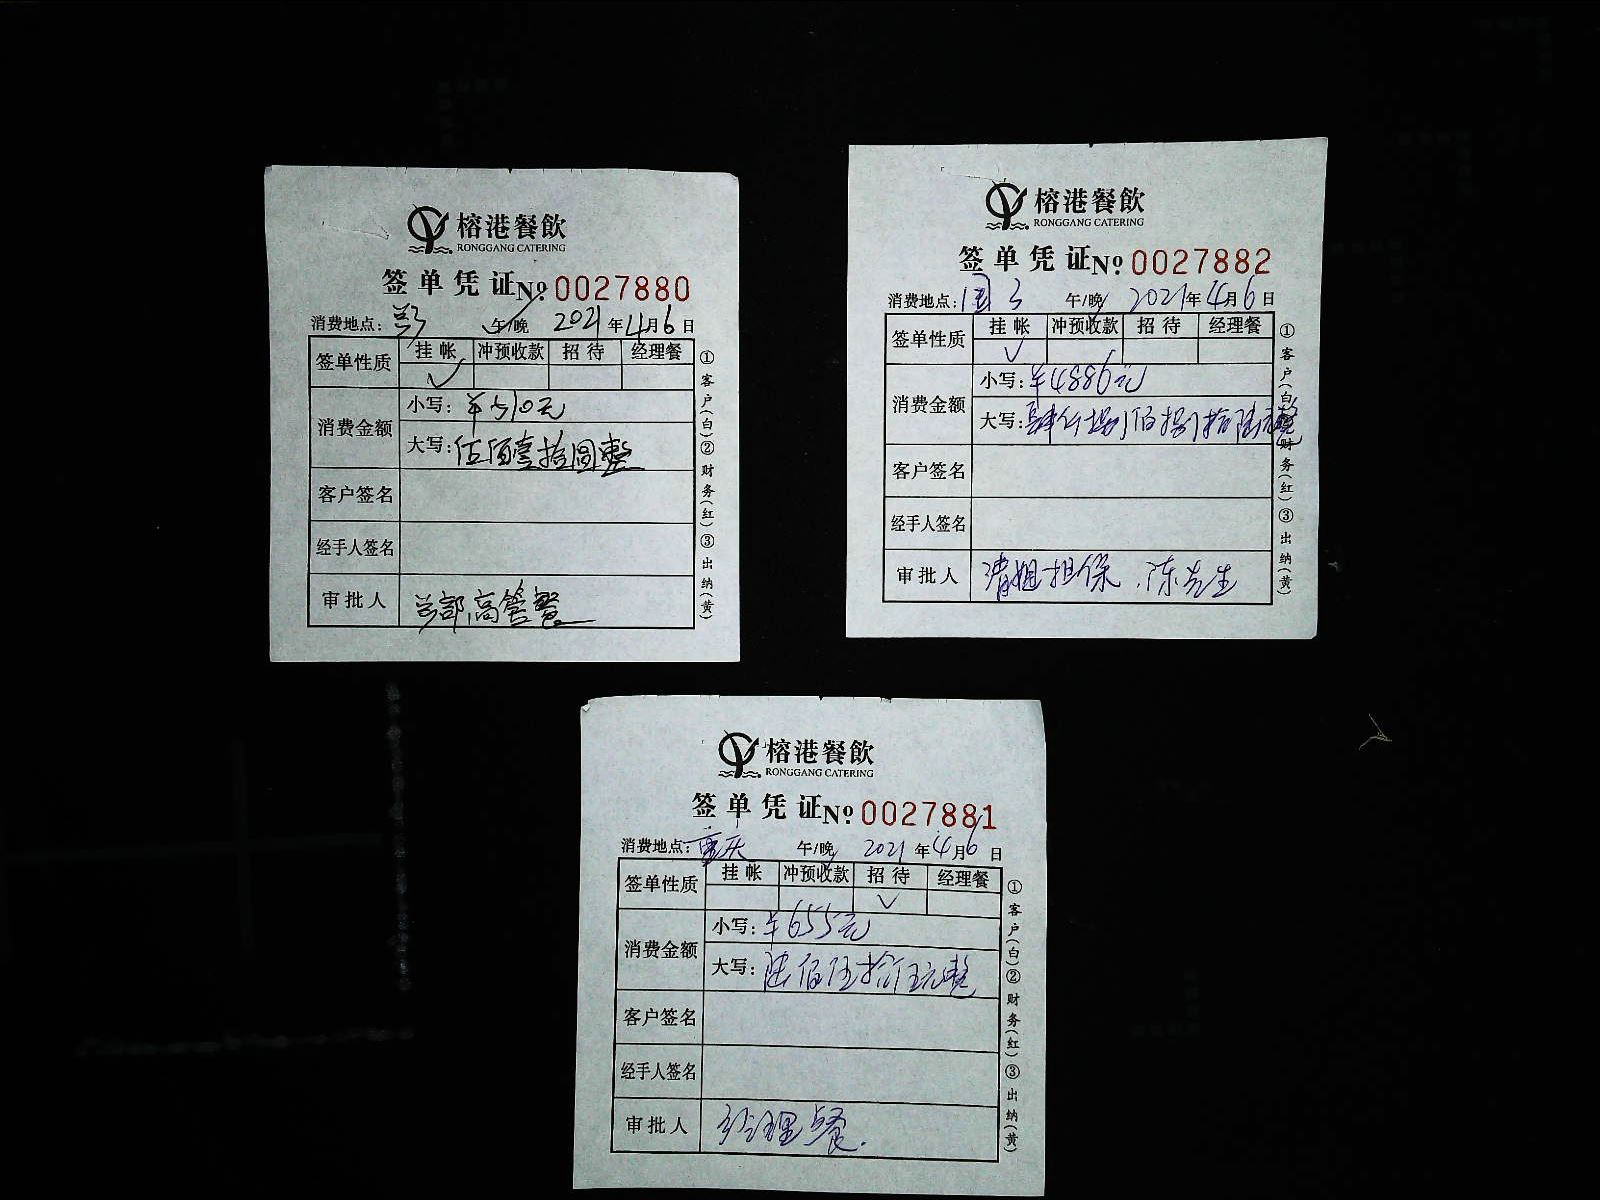 榕港餐飲
RONGGANG CATERING
签单凭证 № 0027880
消费地点: 午/晚 2021年4月6日
签单性质 挂帐 冲预收款 招待 经理餐
√
消费金额 小写: ¥510元
大写: 伍佰壹拾圆整
客户签名
经手人签名
审批人 总部高管餐
①客户(白)②财务(红)③出纳(黄)
榕港餐飲
RONGGANG CATERING
签单凭证 № 0027882
消费地点: 国 午/晚 2021年4月6日
签单性质 挂帐 冲预收款 招待 经理餐
√
消费金额 小写: ¥4886元
大写: 肆仟捌佰捌拾陆元整
客户签名
经手人签名
审批人 清姐担保 陈先生
①客户(白)②财务(红)③出纳(黄)
榕港餐飲
RONGGANG CATERING
签单凭证 № 0027881
消费地点: 重庆 午/晚 2021年4月6日
签单性质 挂帐 冲预收款 招待 经理餐
√
消费金额 小写: ¥655元
大写: 陆佰伍拾伍元整
客户签名
经手人签名
审批人 经理餐.
①客户(白)②财务(红)③出纳(黄)